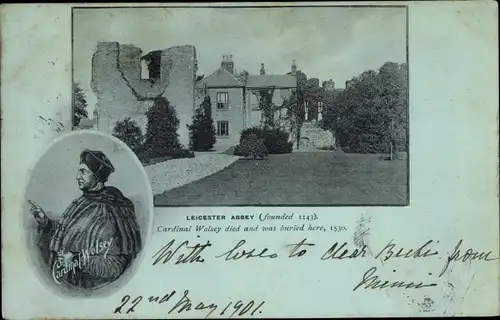 LEICESTER ABBEY (founded 1143).
Cardinal Wolsey died and was buried here, 1530.
Cardnl Wolsey
With love to dear Bertie from
Minni
22nd May 1901.